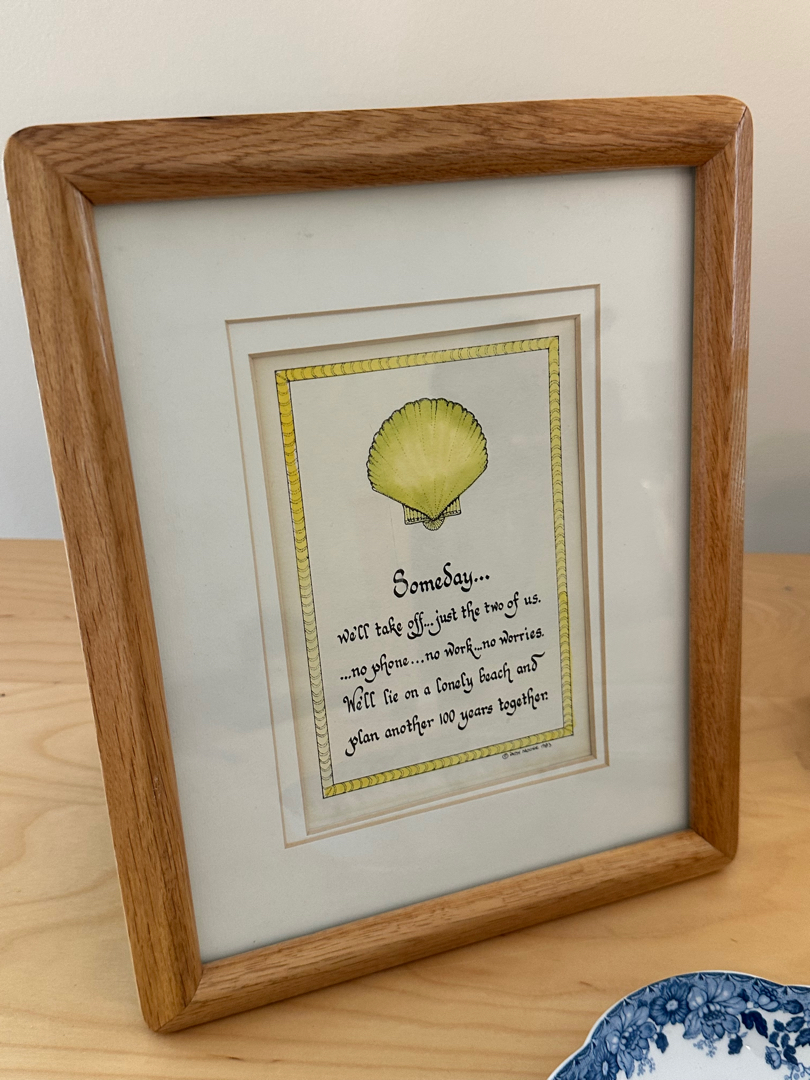 Someday...
we'll take off...just the two of us.
...no phone...no work...no worries.
We'll lie on a lonely beach and
plan another 100 years together.
©